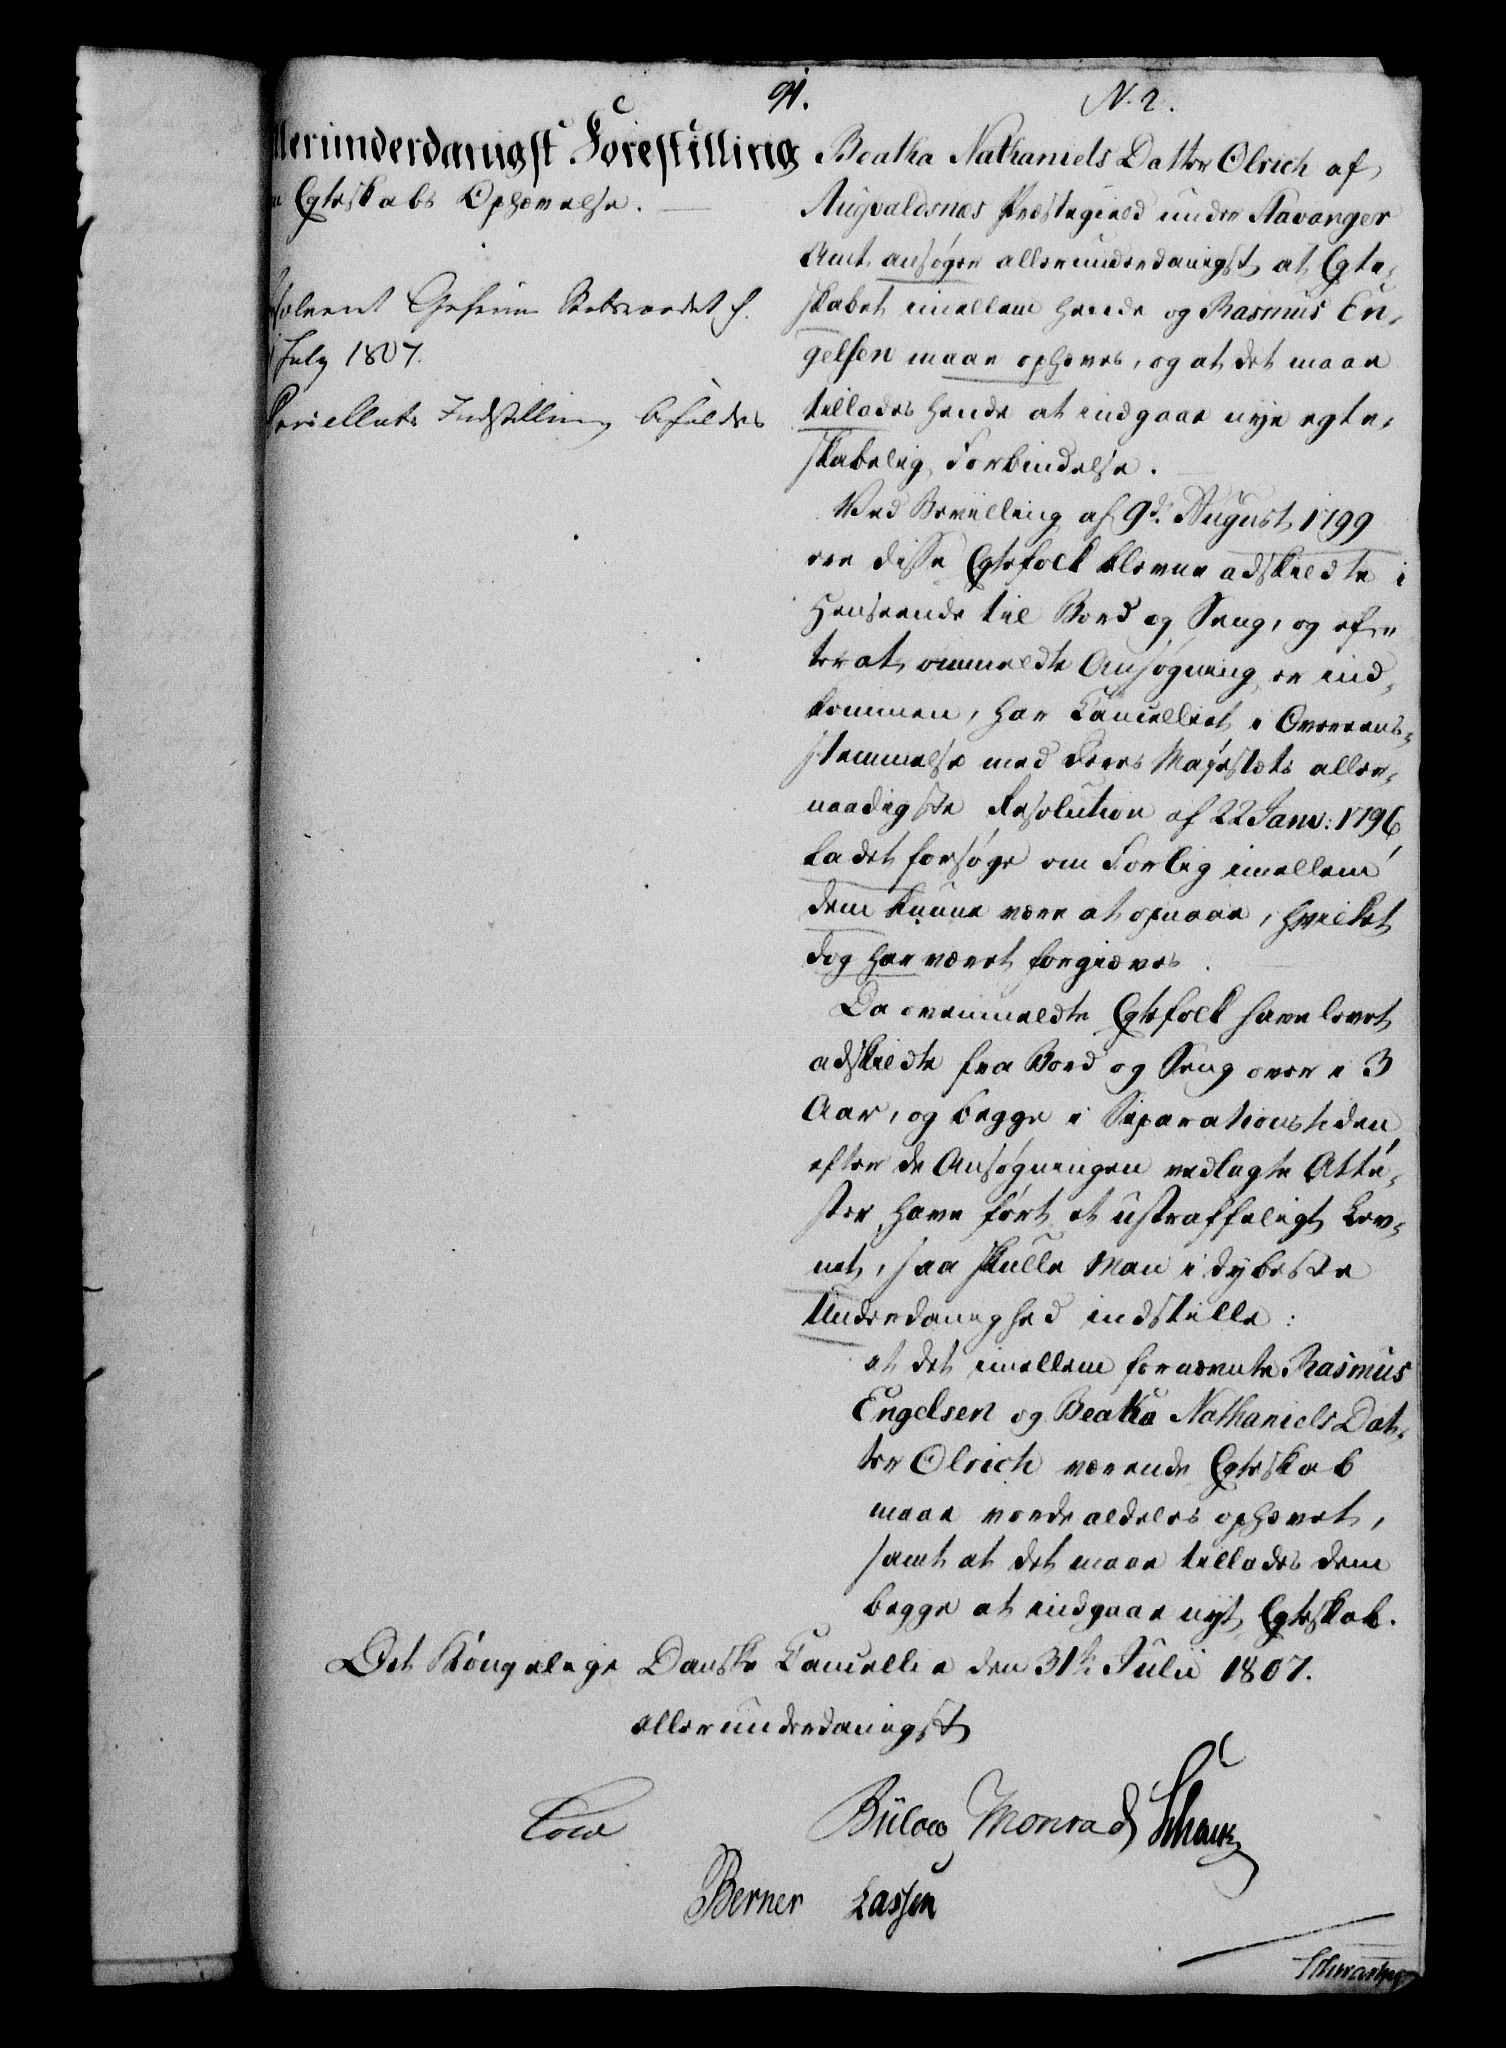 91.
N. 2.
llerunderdanigst Forestilling
Egteskabs Ophævelse.
July 1807.
Cancelliets Indstilling bifaldes
Beatha Nathaniels Datter Olrich af
Augvaldsnæs Præstegield under Stavanger
Amt ansøger allerunderdanigst, at Egte-
skabet imellem hende og Rasmus En-
gelsen maae ophæves, og at det maae
tillades hende at indgaae nye egte-
skabelig Forbindelse.
Ved Bevilling af 9de August 1799
ere disse Egtefolk blevne adskildte i
Henseende til Bord og Seng, og ef-
terat ommeldte Ansøgning er ind-
kommen, har Cancelliet i Overens-
stemmelse med Deres Majestæts aller-
naadigste Resolution af 22 Janv: 1796
ladet forsøge om Forlig imellem
dem kunne være at opnaae, hvilket
dog har været forgieves.
Da ovenmeldte Egtefolk have levet
adskildte fra Bord og Seng over i 3
Aar, og begge i Separationstiden
efter de Ansøgningen vedlagte Atte-
ster have ført et ustraffeligt Lev-
net, saa skulle Man i dybeste
Underdanighed indstille:
at det imellem fornævnte Rasmus
Engelsen og Beatha Nathaniels Dat-
ter Olrich værende Egteskab
maae vorde aldeles ophævet,
samt at det maae tillades dem
begge at indgaae nyt Egteskab.
Det Kongelige Danske Cancellie den 31te Julii 1807.
allerunderdanigst
Cold Bülow Monrad
Berner Lassen